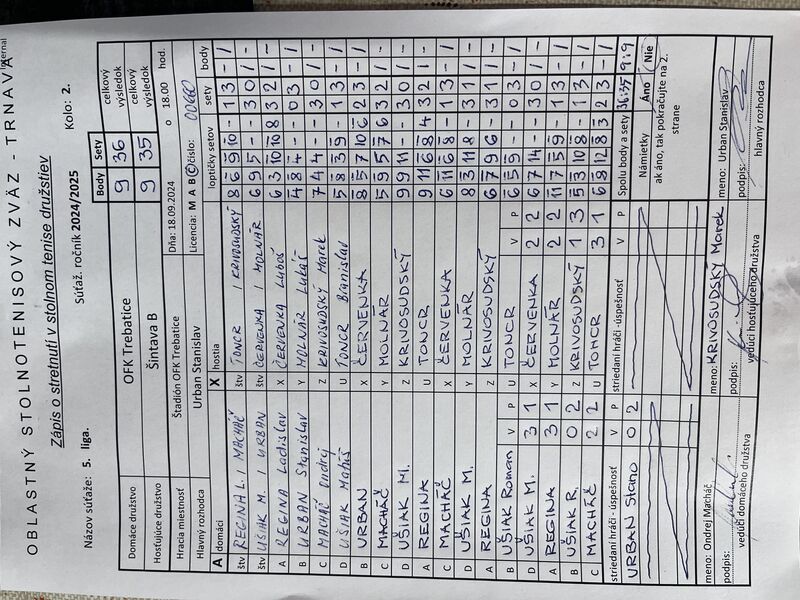 OBLASTNÝ STOLNOTENISOVÝ ZVÄZ - TRNAVA
Zápis o stretnutí v stolnom tenise družstiev
Názov súťaže: 5. liga. Súťaž. ročník 2024/2025 Kolo: 2.
Body Sety
Domáce družstvo OFK Trebatice 9 36 celkový výsledok
Hosťujúce družstvo Šintava B 9 35 celkový výsledok
Hracia miestnosť Štadión OFK Trebatice Dňa: 18.09.2024 o 18.00 hod.
Hlavný rozhodca Urban Stanislav Licencia: M A B C číslo:
A domáci X hostia loptičky setov sety body
štv REGINA L. / MACHÁČ štv TONCR / KRIVOSUDSKÝ 8 -9 -10 1 3 - 1
štv UŠIAK M. / URBAN štv ČERVENKA / MOLNÁR 6 9 5 - - 3 0 1 -
A REGINA Ladislav X ČERVENKA Ľuboš 3 2 1 -
B URBAN Stanislav Y MOLNÁR Lukáš 0 3 - 1
C MACHÁČ Ondrej Z KRIVOSUDSKÝ Marek 7 4 4 - - 3 0 1 -
D UŠIAK Matúš U TONCR Branislav 1 3 - 1
B URBAN X ČERVENKA 2 3 - 1
C MACHÁČ Y MOLNÁR 3 2 1 -
D UŠIAK M. Z KRIVOSUDSKÝ 9 9 11 - - 3 0 1 -
A REGINA U TONCR 3 2 1 -
C MACHÁČ X ČERVENKA 1 3 - 1
D UŠIAK M. Y MOLNÁR 3 1 1 -
A REGINA Z KRIVOSUDSKÝ 3 1 1 -
B UŠIAK Roman U TONCR 0 3 - 1
V P V P
D UŠIAK M. 3 1 X ČERVENKA 2 2 6 7 14 - - 3 0 1 -
A REGINA 3 1 Y MOLNÁR 2 2 1 3 - 1
B UŠIAK R. 0 2 Z KRIVOSUDSKÝ 1 3 1 3 - 1
C MACHÁČ 2 2 U TONCR 3 1 2 3 - 1
striedaní hráči -úspešnosť V P striedaní hráči -úspešnosť V P Spolu body a sety 36:35 9:9
URBAN Stano 0 2 Námietky Áno Nie
ak áno, tak pokračujte na 2. strane
meno: Ondrej Macháč meno: KRIVOSUDSKÝ Marek meno: Urban Stanislav
podpis: podpis: podpis:
vedúci domáceho družstva vedúci hosťujúceho družstva hlavný rozhodca